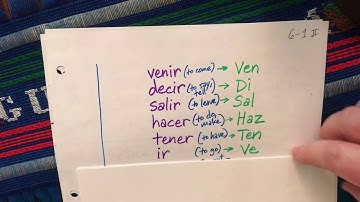 6-1 II
venir (to come) → Ven
decir (to say/ tell) → Di
salir (to leave) → Sal
hacer (to do, make) → Haz
tener (to have) → Ten
ir (to go) → Ve